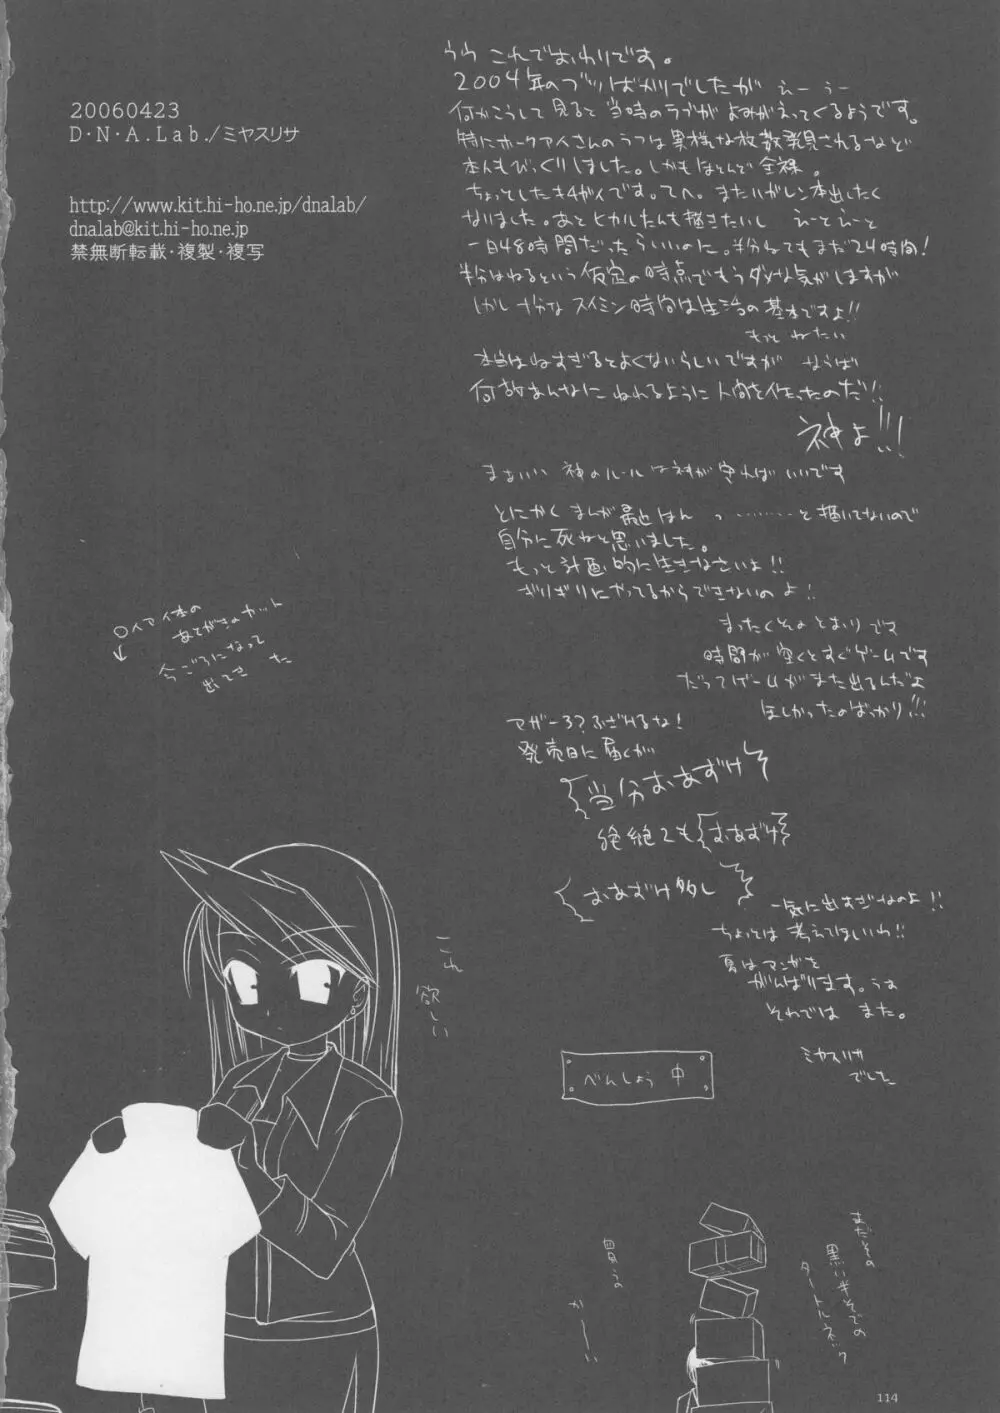 20060423
D・N・A.Lab./ミヤスリサ
http://www.kit.hi-ho.ne.jp/dnalab/
dnalab@kit.hi-ho.ne.jp
禁無断転載・複製・複写
うう これでおわりです。
2004年のブツばかりでしたが えー うー
何かこうして見ると当時のラブがよみがえってくるようです。
特にホークアイさんのラフは異様な枚数発見されるなど
本人もびっくりしました。しかもほとんど全裸。
ちょっとしたキ4ガイです。てへ。またハガレン本出したく
なりました。あとヒカルたんも描きたいし えーとえーと
一日48時間だったらいいのに。半分ねてもまだ24時間!
半分はねるという仮定の時点でもうダメな気がしますが
しかし十分なスイミン時間は生活の基本ですよ!!
もっと ねたい
本当はねすぎるとよくないらしいですが ならば
何故あんなにねれるように人間を作ったのだ!!
神よ!!!
まぁいい 神のルールは神が守ればいいです
とにかく まんが 最近はん っ………と描いてないので
自分に死ねと思いました。
もっと計画的に生きなさいよ!!
ギリギリにやってるからできないのよ!!
まったくそのとおりです
時間が空くとすぐゲームです
だってゲームがまた出るんだよ
ほしかったのばっかり!!!
マザー3?ふざけるな!
発売日に届くが
当分おあずけ
絶絶ても おあずけ
おあずけ多し
一気に出すぎなのよ!!
ちょっとは考えてほしいわ!!
夏はマンガを
がんばります。うぉ
それでは また。
ミヤスリサ
でした
○イアイ本の
あとがきのカット
今ごろになって
出てきた
これ
欲しい
べんしょう中
買うの
かーい
まだその
黒い半そでの
タートルネック
114